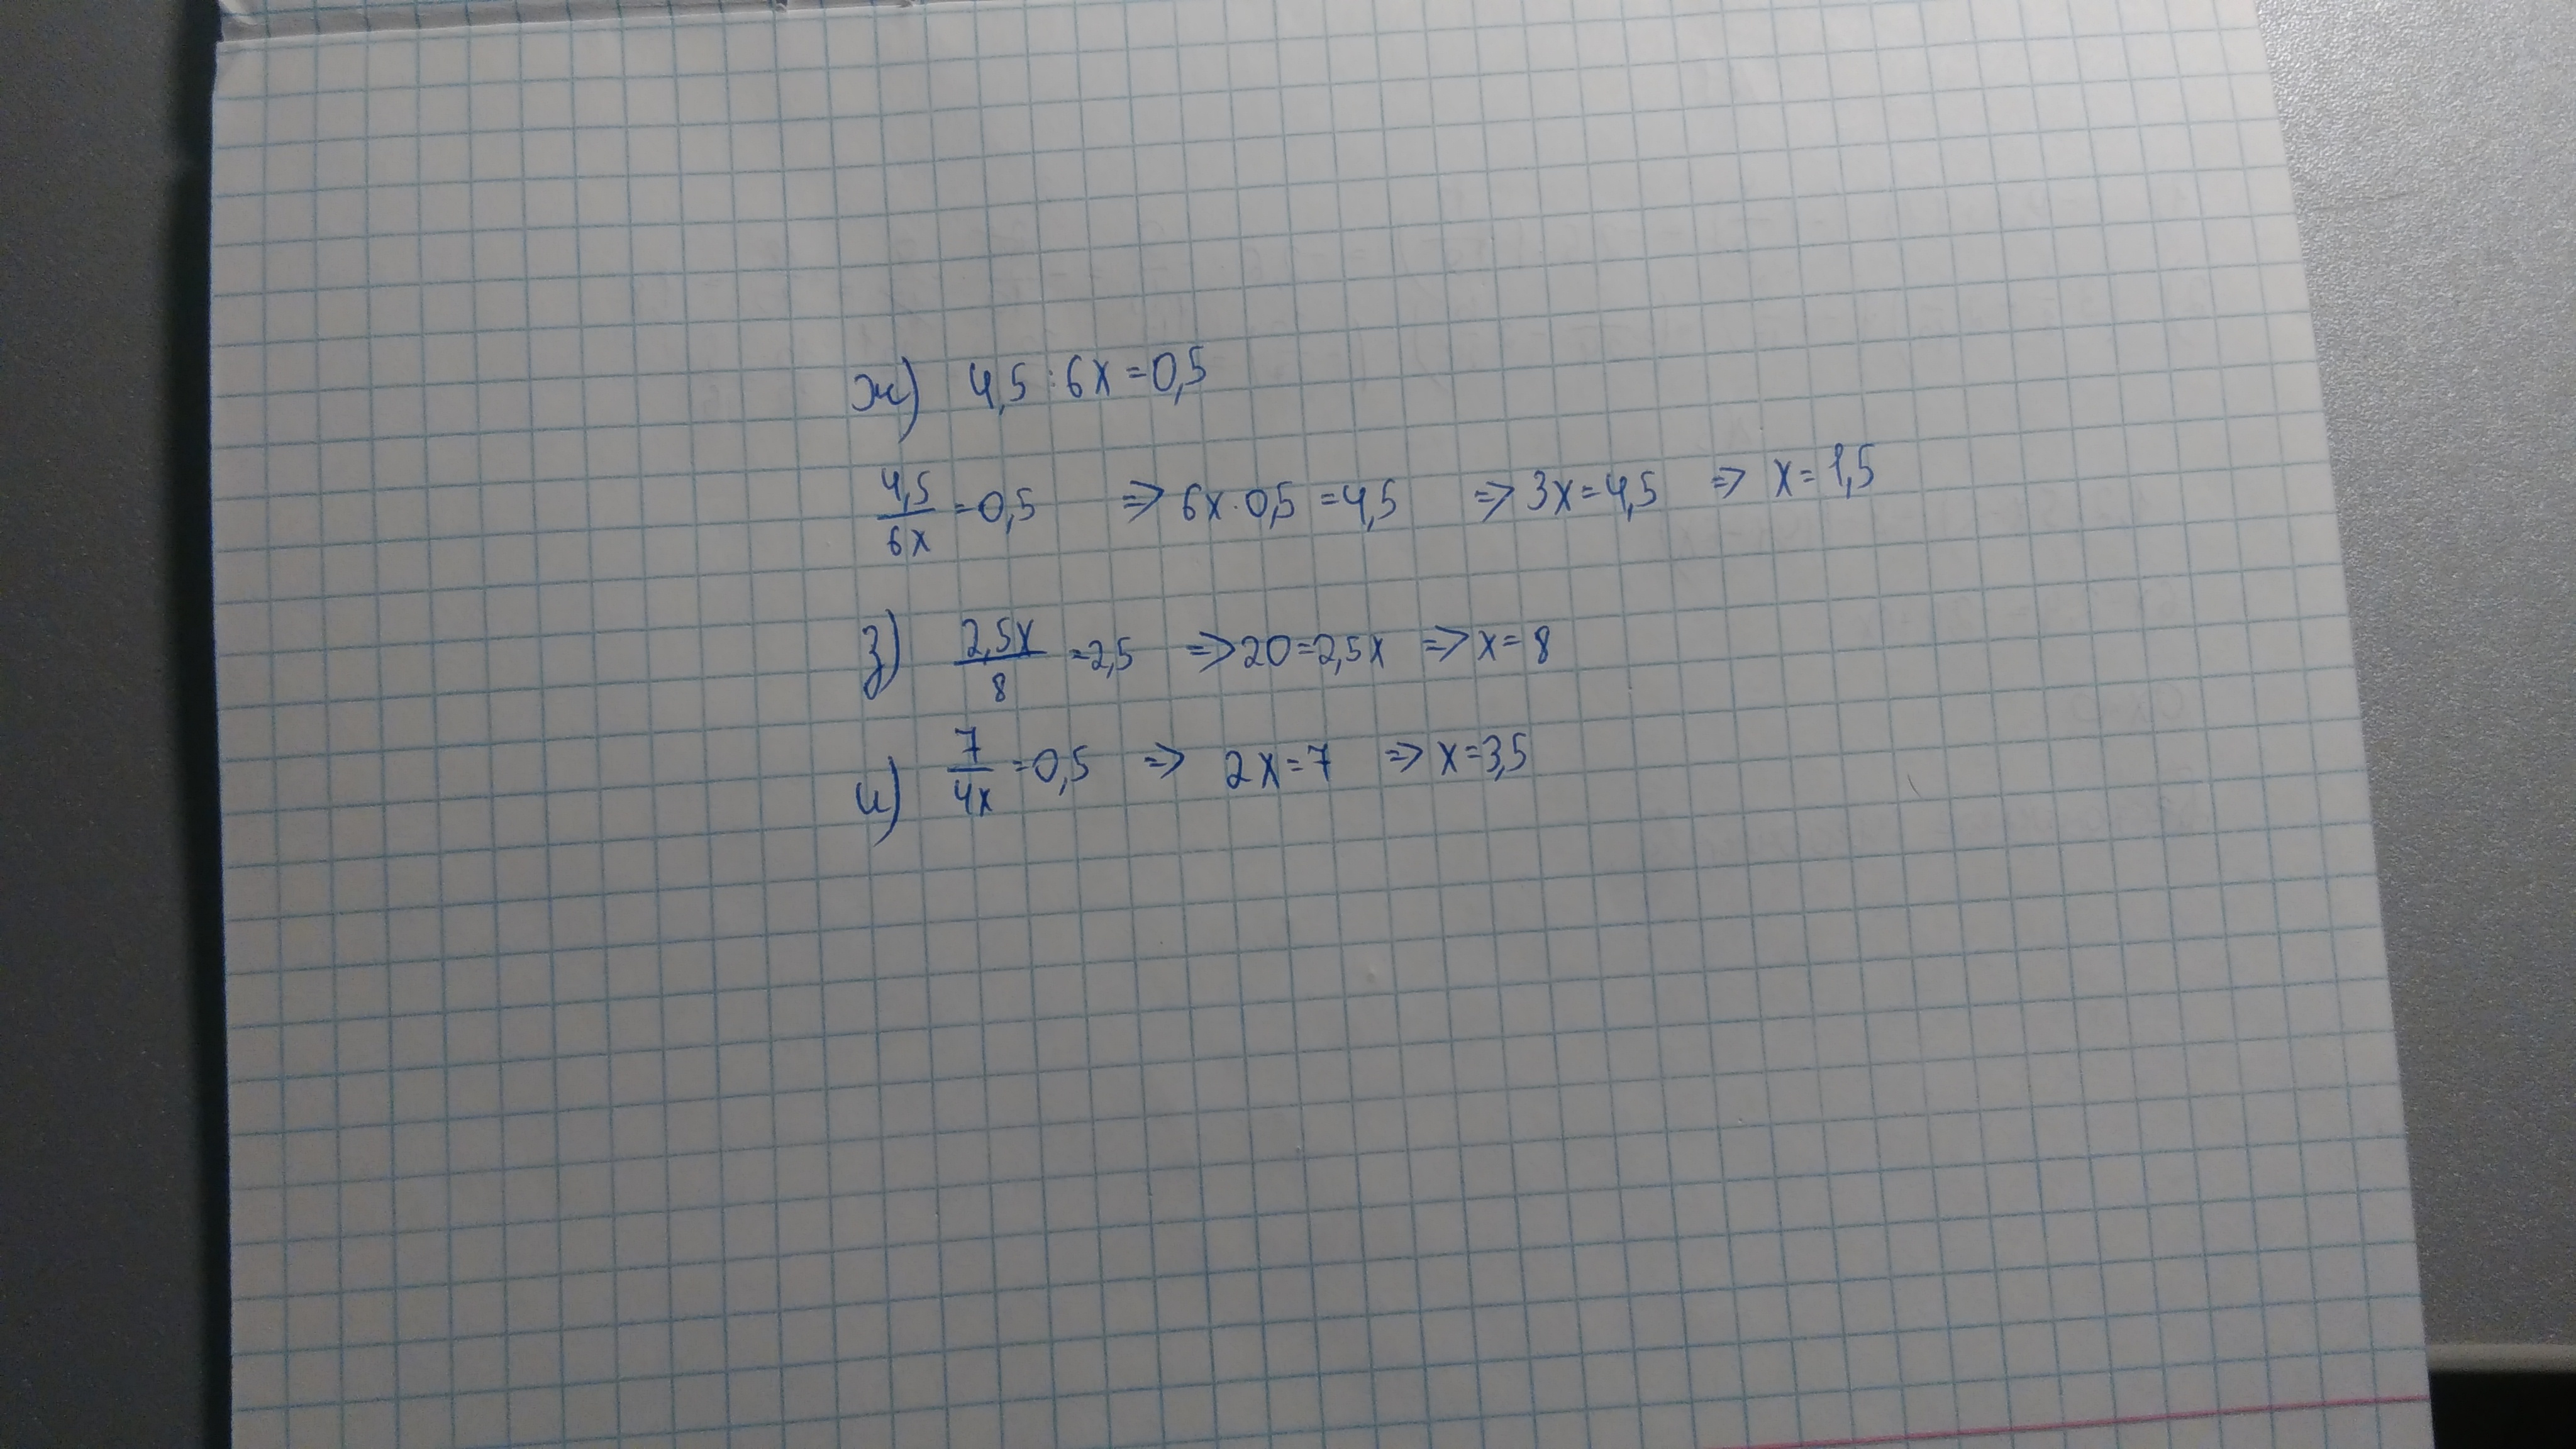 ж) 4,5 : 6x = 0,5
4,5/6x = 0,5 => 6x · 0,5 = 4,5 => 3x = 4,5 => x = 1,5
з) 2,5x/8 = 2,5 => 20 = 2,5x => x = 8
и) 7/4x = 0,5 => 2x = 7 => x = 3,5